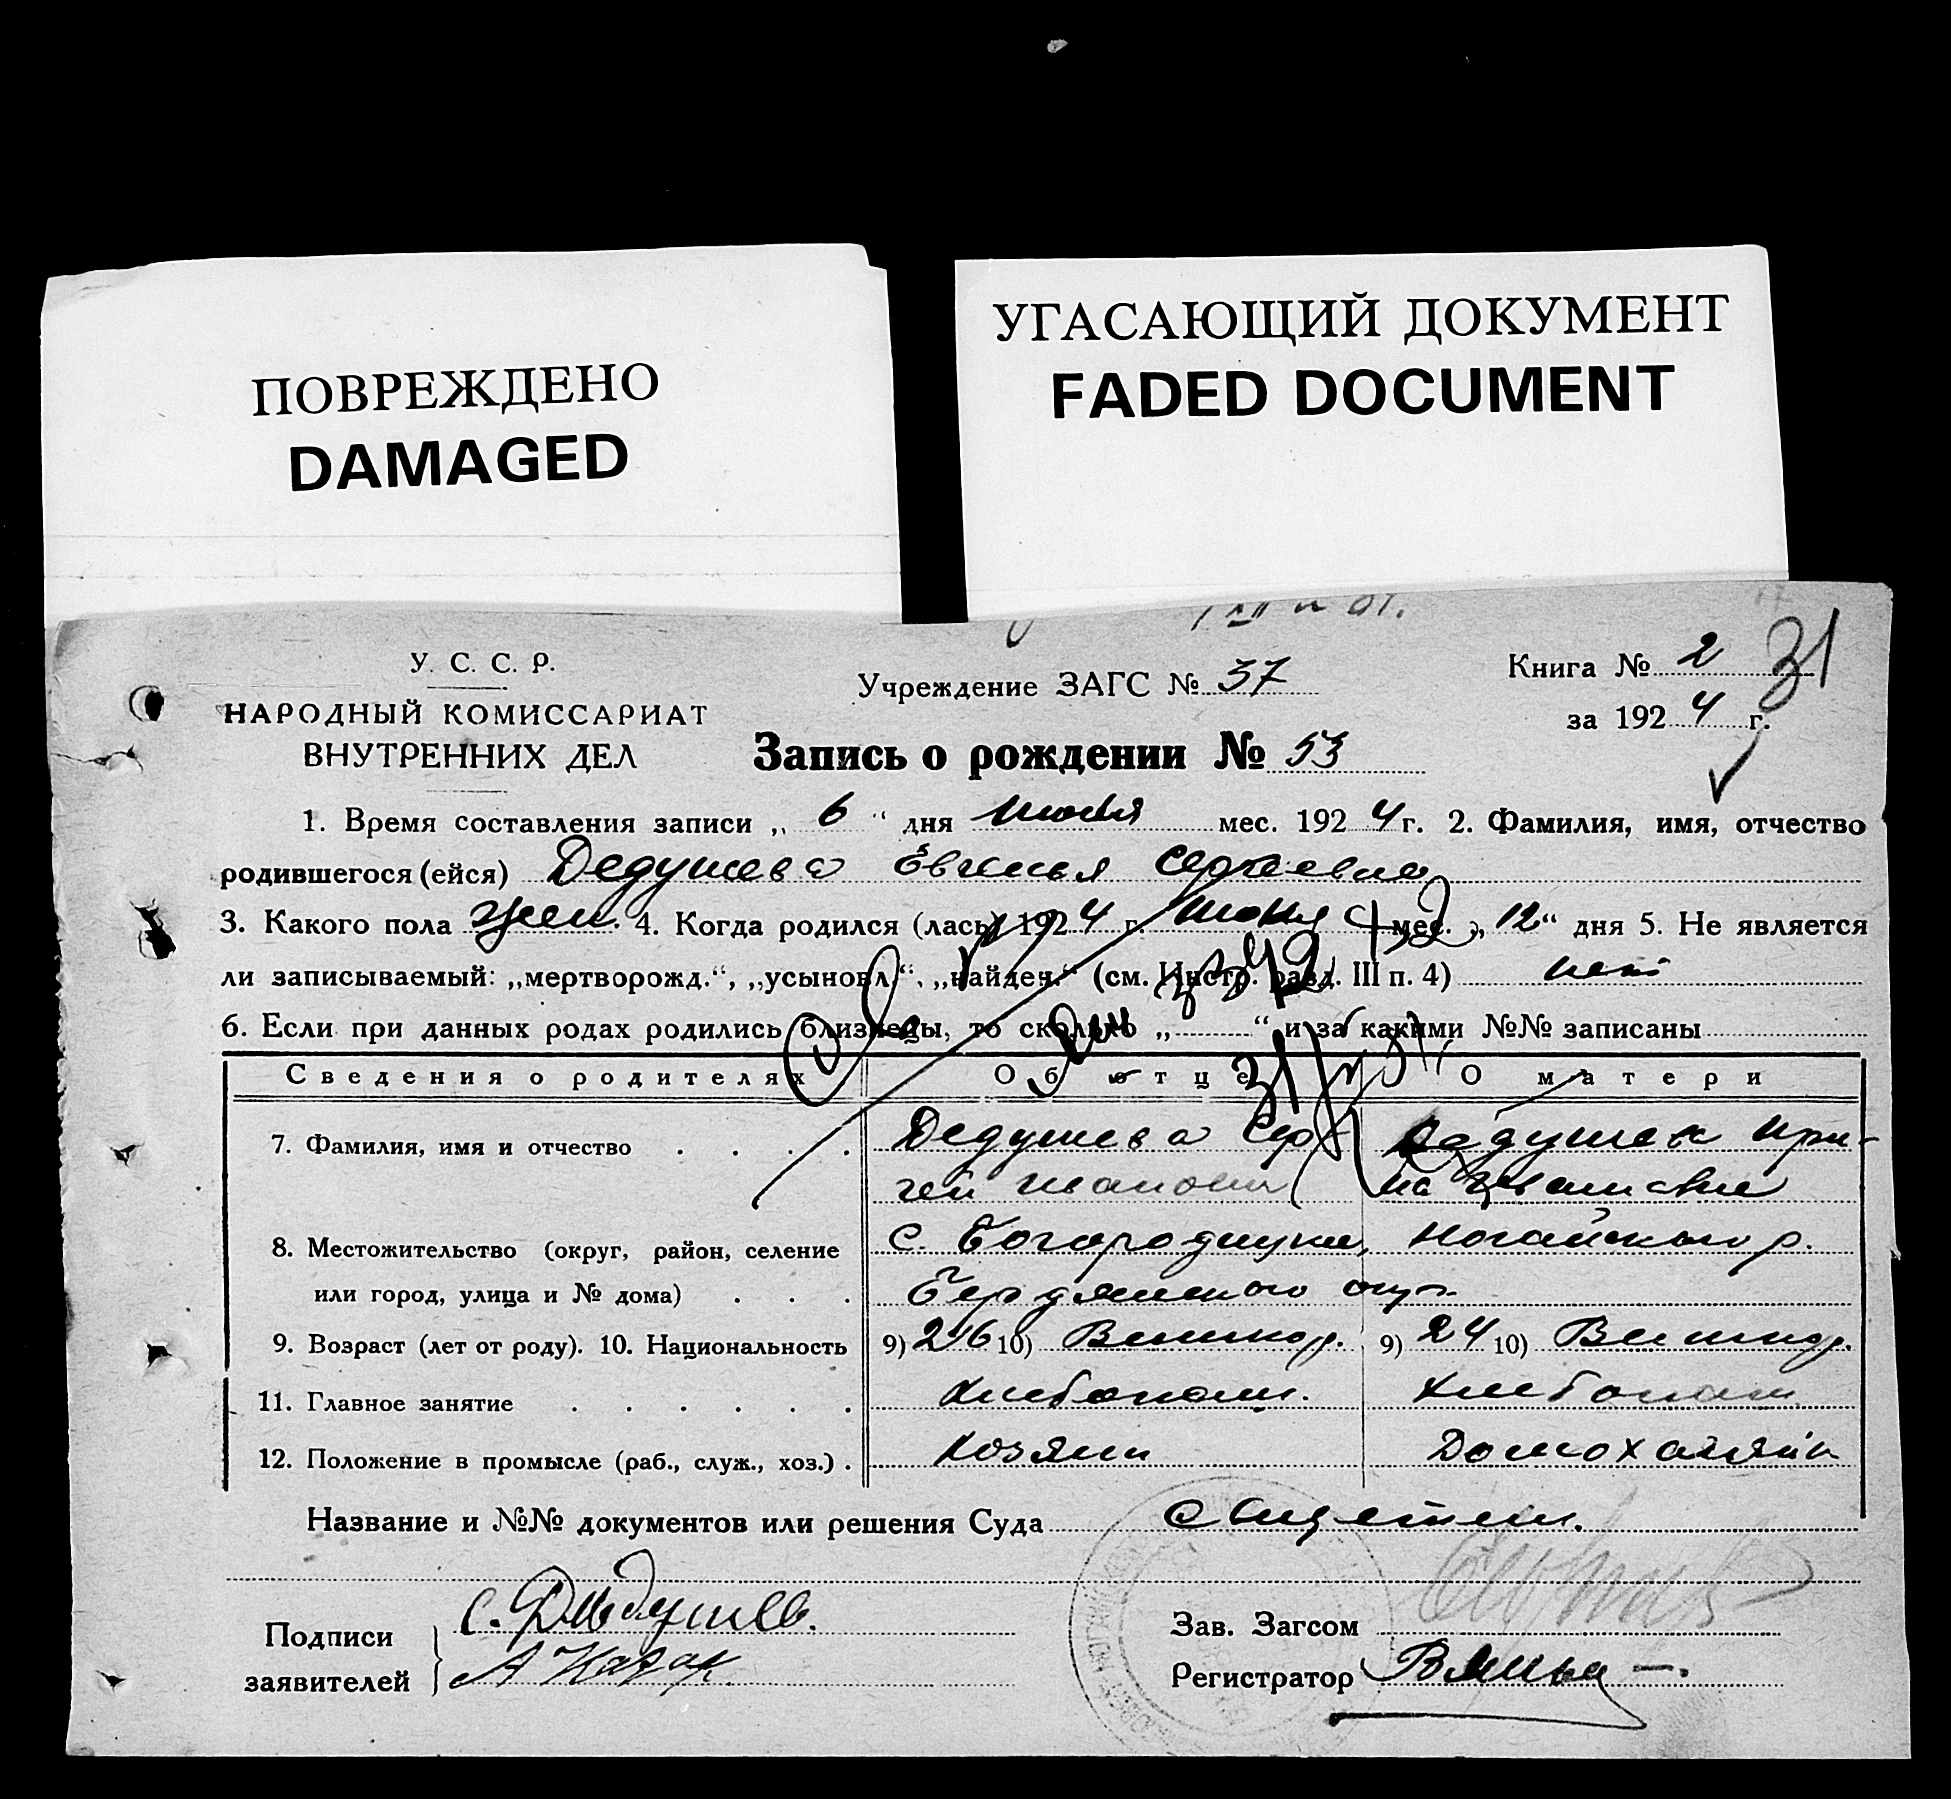 ПОВРЕЖДЕНО
DAMAGED
УГАСАЮЩИЙ ДОКУМЕНТ
FADED DOCUMENT
У. С. С. Р.
НАРОДНЫЙ КОМИССАРИАТ
ВНУТРЕННИХ ДЕЛ
Учреждение ЗАГС № 37
Книга № 2 31
за 1924 г.
Запись о рождении № 53
1. Время составления записи „ 6 “ дня мес. 1924 г. 2. Фамилия, имя, отчество
родившегося (ейся) Дедушева Евгенья Сергеевна
3. Какого пола жен. 4. Когда родился (лась) 1924 г. мес. „ 12 “ дня 5. Не является
ли записываемый: „мертворожд.“, „усыновл.“, „найден.“ (см. Инстр. разд. III п. 4) нет
6. Если при данных родах родились близнецы, то сколько „ “ и за какими №№ записаны
Сведения о родителях Об отце О матери
7. Фамилия, имя и отчество . . . . Дедушева Сер- Ири-
гей Иванови на
8. Местожительство (округ, район, селение с. Ногайского р.
или город, улица и № дома) . . . Бердянского окр.
9. Возраст (лет от роду). 10. Национальность 9) 26 10) 9) 24 10)
11. Главное занятие . . . . . . Хлебопаш. Хлебопаш
12. Положение в промысле (раб., служ., хоз.) . Хозяин
Название и №№ документов или решения Суда
Подписи
заявителей
С. Дьдушев.
А Казак
Зав. Загсом
Регистратор